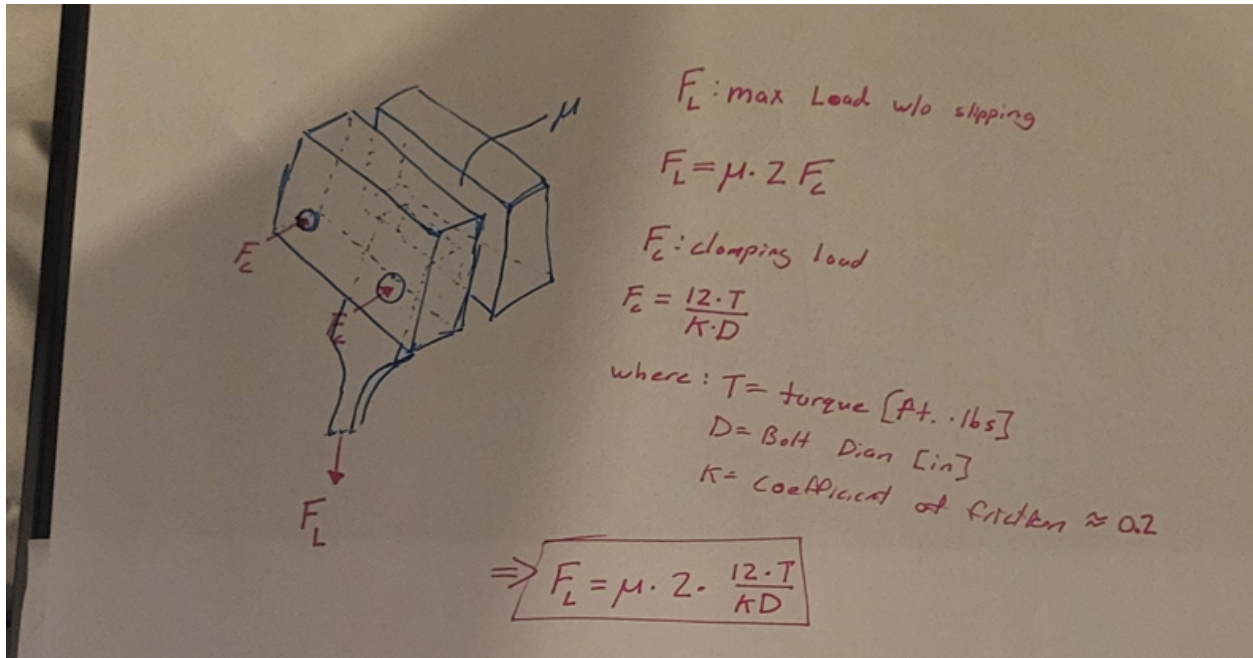 μ
F_L: max Load w/o slipping
F_L = μ · 2 F_c
F_c: clamping load
F_c = 12·T / K·D
where: T = torque [ft. · lbs]
D = Bolt Diam [in]
K = coefficient of friction ≈ 0.2
F_c
F_c
F_L
⇒ F_L = μ · 2 · 12·T / KD